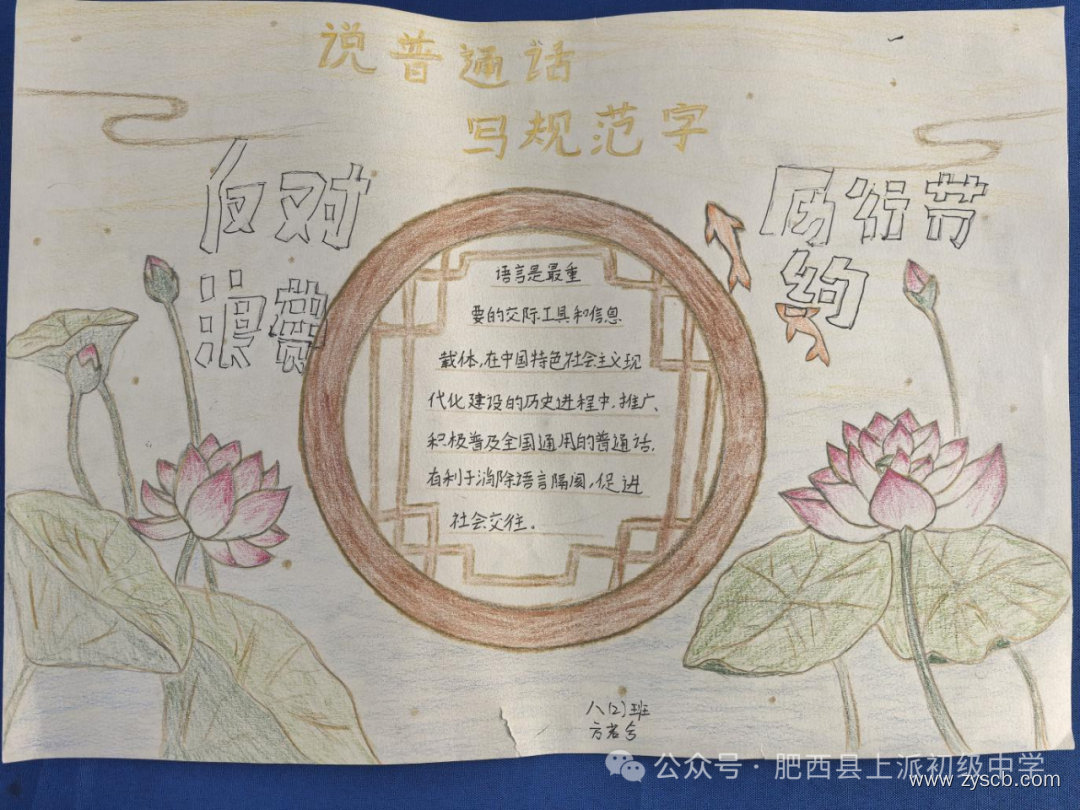 说普通话
写规范字
反对
浪费
厉行节
约
语言是最重
要的交际工具和信息
载体,在中国特色社会主义现
代化建设的历史进程中,推广、
积极普及全国通用的普通话,
有利于消除语言隔阂,促进
社会交往。
八(2)班
公众号·肥西县上派初级中学
www.zyscb.com